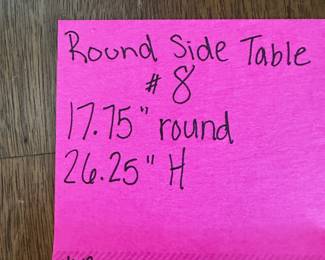 Round Side Table
# 8
17.75" round
26.25" H